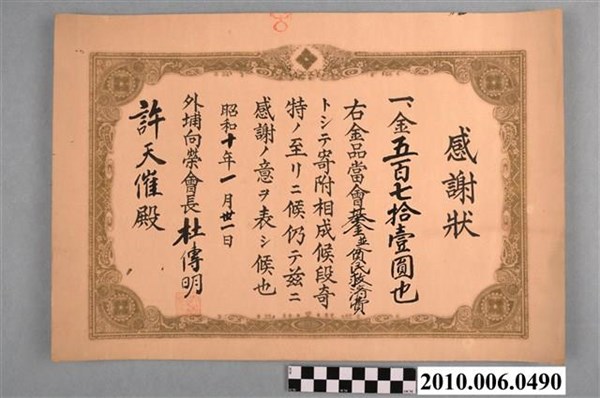 感謝狀
一、金五百七拾壹圓也
右金品當會基並貧民救濟費
トシテ寄附相成候段奇
特ノ至リニ候仍テ茲ニ
感謝ノ意ヲ表シ候也
昭和十年一月卅一日
外埔向榮會長 杜傳明
許天催殿
2010.006.0490